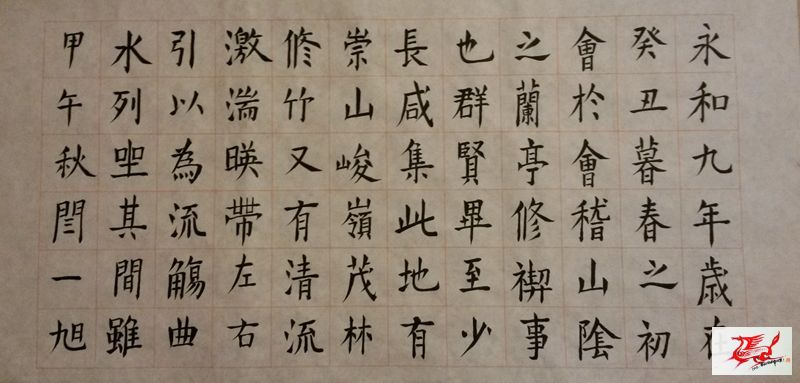 永和九年歳在
癸丑暮春之初
會於會稽山陰
之蘭亭修禊事
也群賢畢至少
長咸集此地有
崇山峻嶺茂林
修竹又有清流
激湍暎帶左右
引以為流觴曲
水列坐其間雖
甲午秋閆一旭